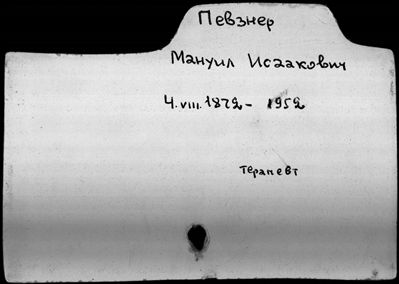 Певзнер
Мануил Исаакович
4.VIII.1872 - 1952
терапевт